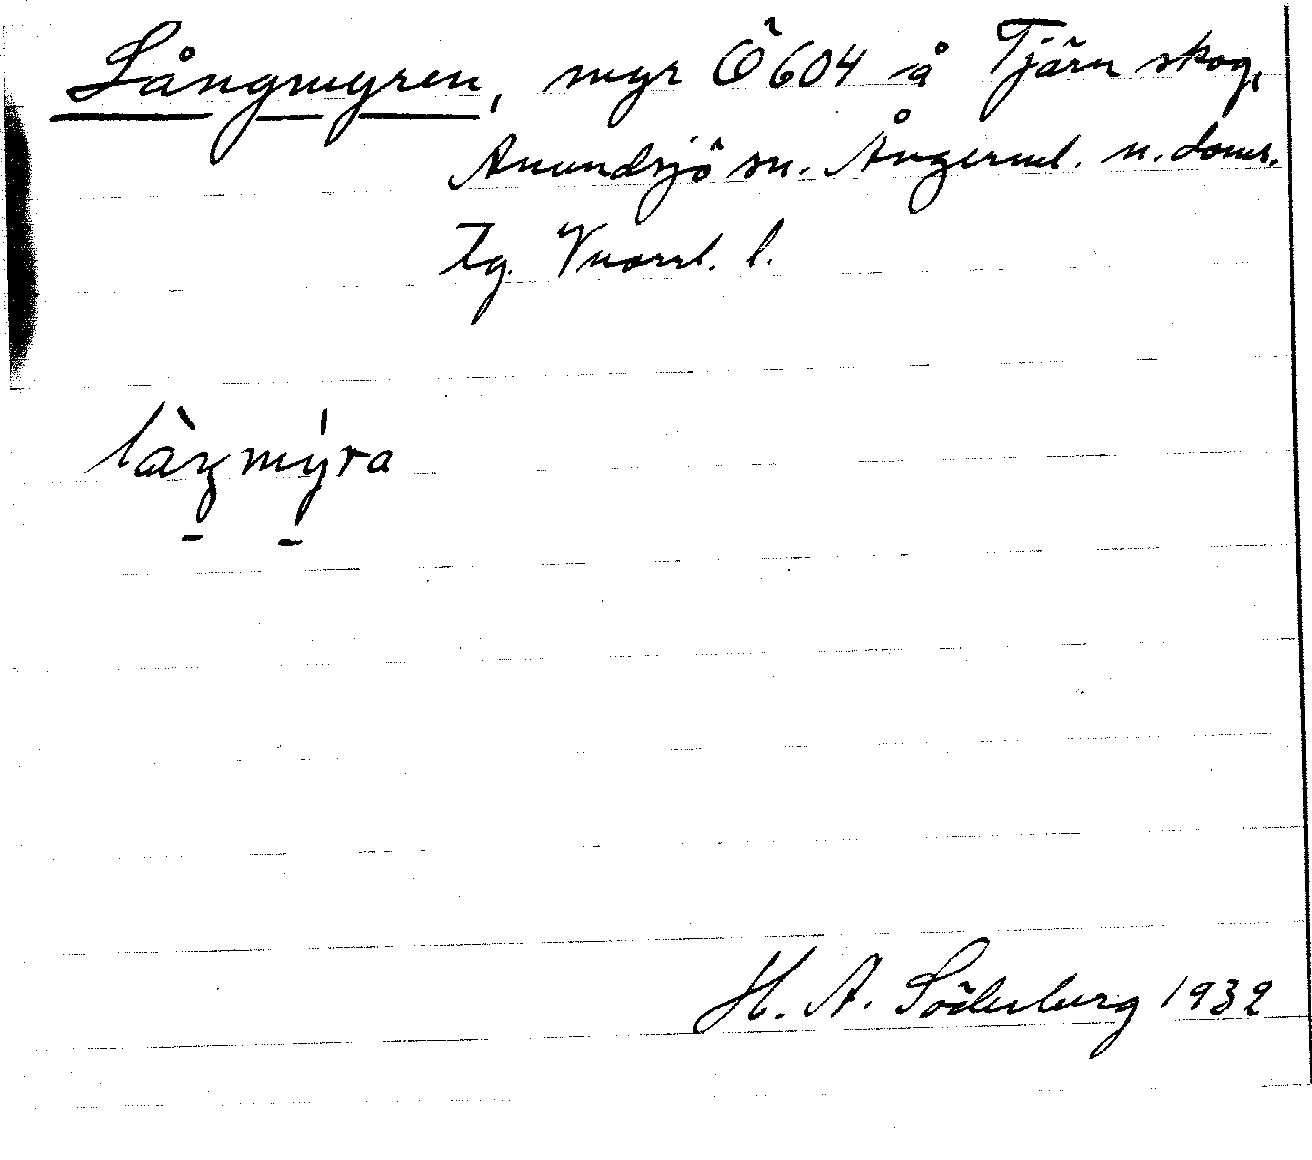 Långmyren, myr Ö604 å Tjärn skog,
Anundsjö sn. Ångerml. n. doms.
Tg. Vnorrl. l.
làŋmýra
H. A. Söderberg 1932